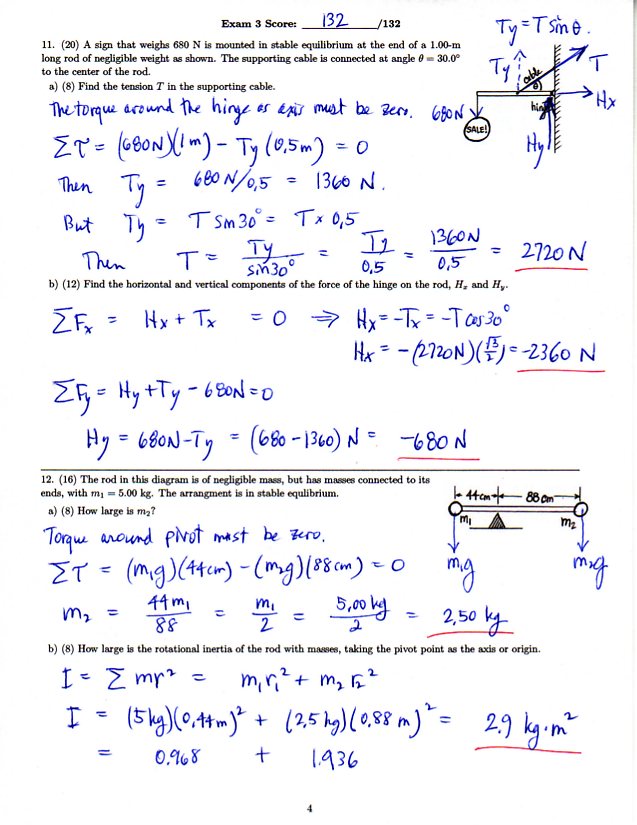 Exam 3 Score: 132 /132
Ty = T sinθ.
11. (20) A sign that weighs 680 N is mounted in stable equilibrium at the end of a 1.00-m
long rod of negligible weight as shown. The supporting cable is connected at angle θ = 30.0°
to the center of the rod.
a) (8) Find the tension T in the supporting cable.
Ty
cable
θ
T
Hx
hinge
680N
SALE!
Hy
The torque around the hinge as axis must be zero.
Στ = (680N)(1m) − Ty (0,5m) = 0
Then Ty = 680N/0,5 = 1360 N.
But Ty = T sin30° = T × 0,5
Then T = Ty/sin30° = Ty/0,5 = 1360N/0,5 = 2720 N
b) (12) Find the horizontal and vertical components of the force of the hinge on the rod, Hx and Hy.
ΣFx = Hx + Tx = 0 ⇒ Hx = −Tx = −T cos30°
Hx = −(2720N)(√3/2) = −2360 N
ΣFy = Hy + Ty − 680N = 0
Hy = 680N − Ty = (680 − 1360) N = −680 N
12. (16) The rod in this diagram is of negligible mass, but has masses connected to its
ends, with m1 = 5.00 kg. The arrangment is in stable equlibrium.
a) (8) How large is m2?
44cm 88cm
m1 m2
m1g m2g
Torque around pivot must be zero.
Στ = (m1g)(44cm) − (m2g)(88cm) = 0
m2 = 44m1/88 = m1/2 = 5,00 kg/2 = 2,50 kg
b) (8) How large is the rotational inertia of the rod with masses, taking the pivot point as the axis or origin.
I = Σ mr² = m1r1² + m2r2²
I = (5kg)(0,44m)² + (2,5 kg)(0,88 m)² = 2.9 kg·m²
= 0.968 + 1.936
4